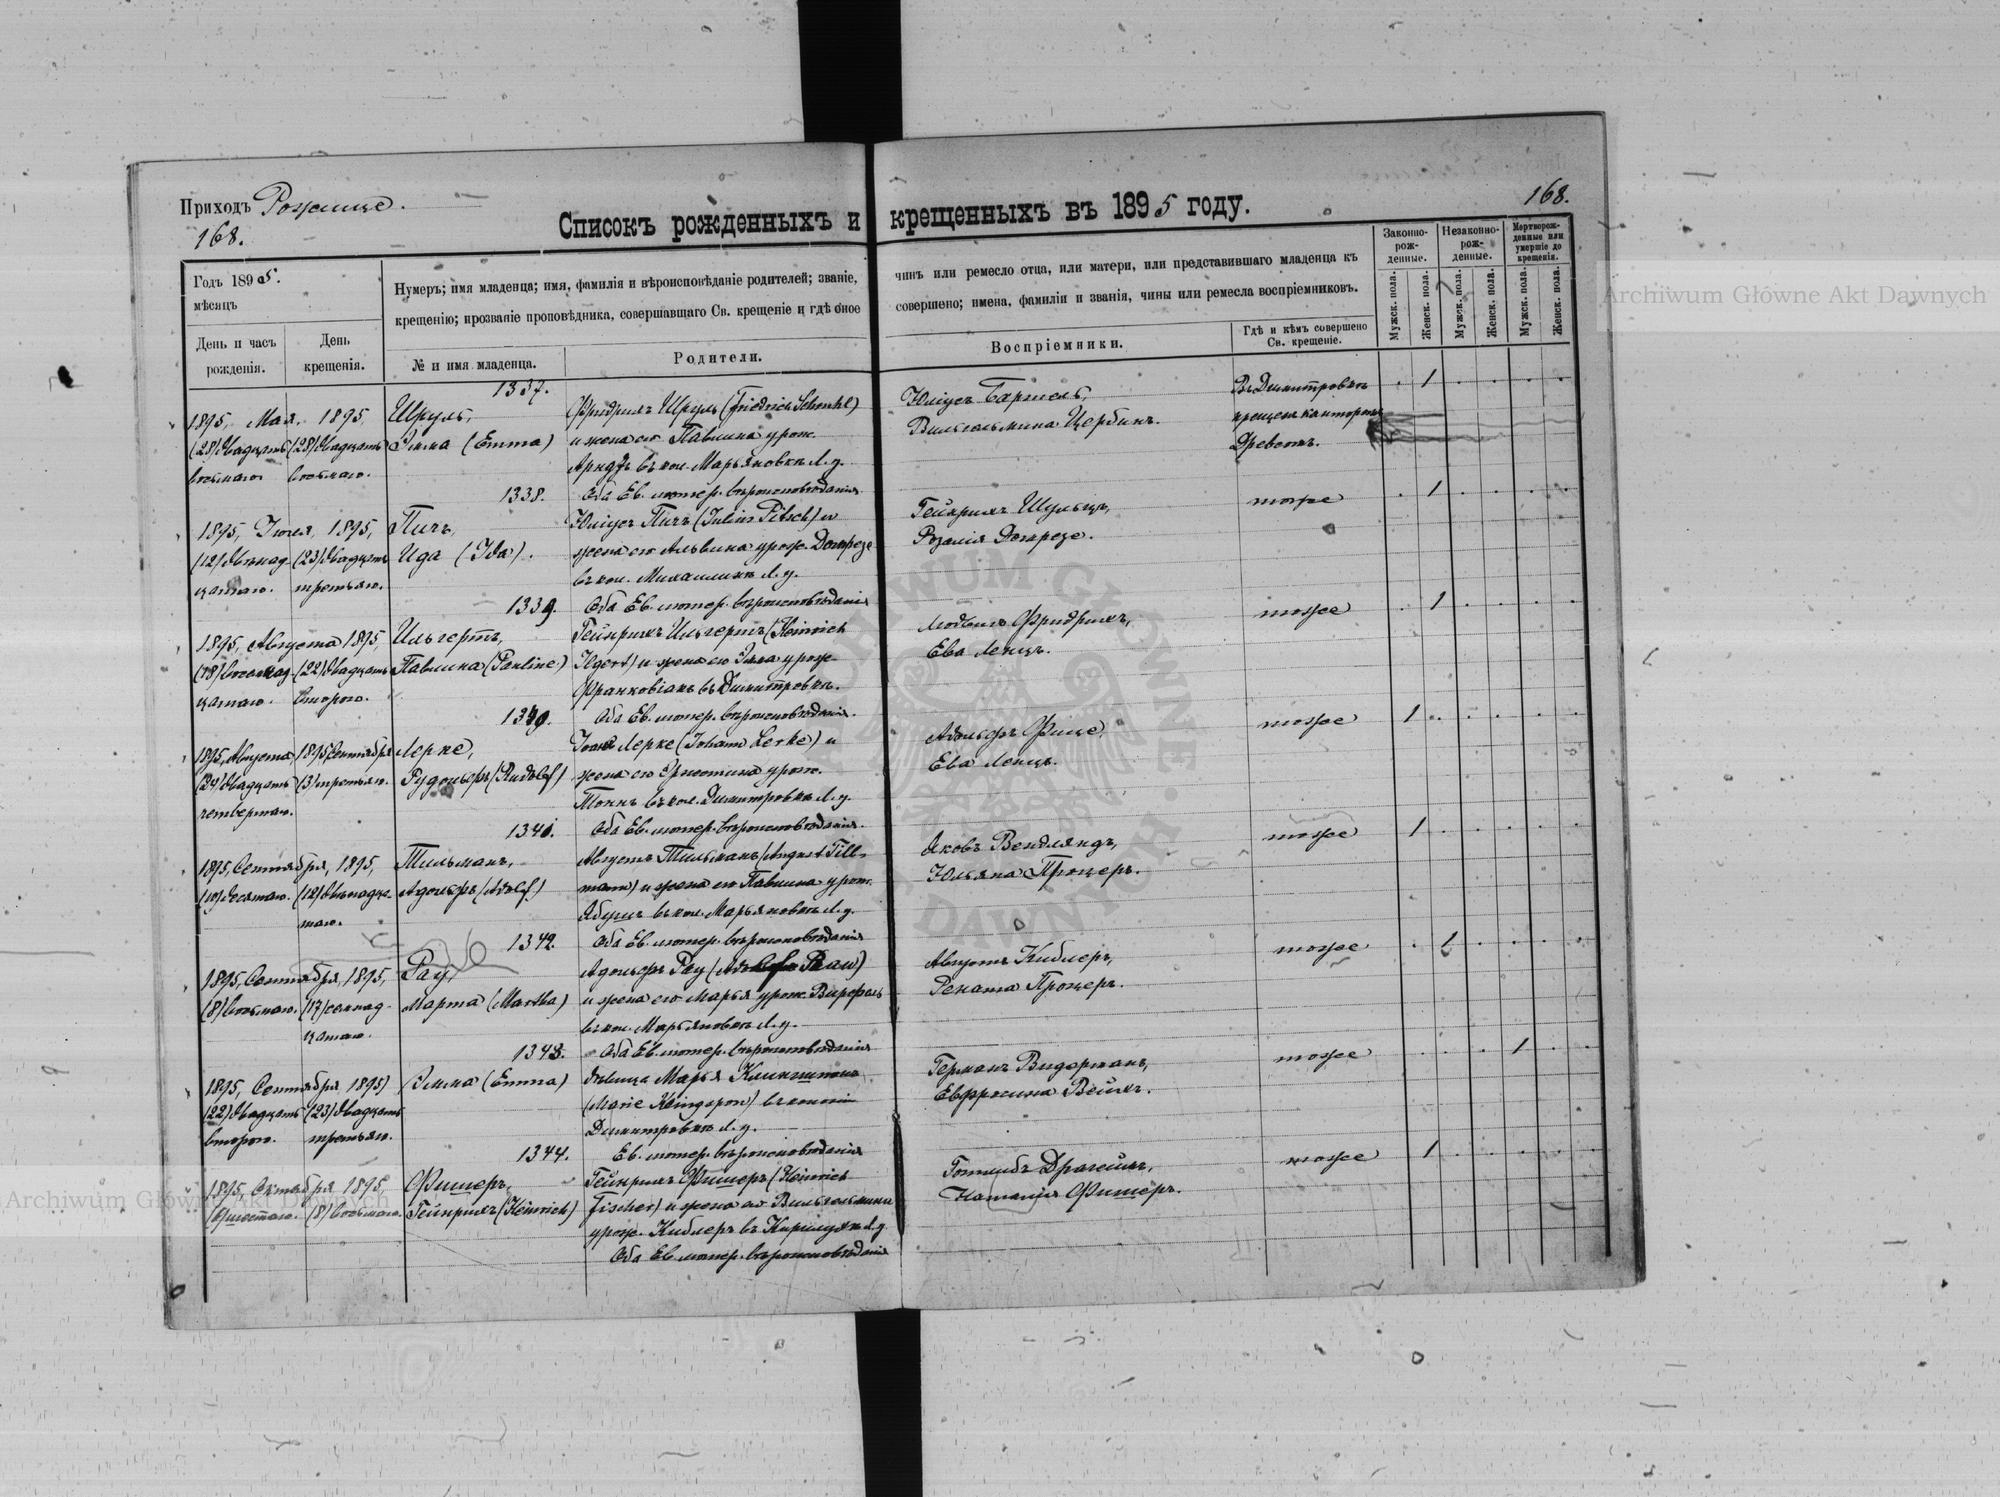 Приходъ Рожище.
168.
168.
Списокъ рожденныхъ и крещенныхъ въ 1895 году.
Годъ 1895.
мѣсяцъ
День и часъ рожденія.
День крещенія.
Нумеръ; имя младенца; имя, фамилія и вѣроисповѣданіе родителей; званіе,
крещенію; прозваніе проповѣдника, совершавщаго Св. крещеніе и гдѣ оное
№ и имя младенца.
Родители.
чинъ или ремесло отца, или матери, или представившаго младенца къ
совершено; имена, фамиліи и званія, чины или ремесла воспріемниковъ.
Воспріемники.
Гдѣ и кѣмъ совершено
Св. крещеніе.
Законно-
рож-
денные.
Незаконно-
рож-
денные.
Мертворож-
денные или
умершіе до
крещенія.
Мужск. пола.
Женск. пола.
Мужск. пола.
Женск. пола.
Мужск. пола.
Женск. пола.
1337.
1895, Мая, 1895,
(28) двадцать (28) двадцать
восьмаго. восьмаго.
Шкуль,
Эмма (Emma)
Фридрихъ Шкуль (Friedrich
и жена его Павлина урож.
Арндтъ въ кол. Марьяновкѣ Л. у.
Оба Ев. лютер. вѣроисповѣданія
Юліусъ Бартель,
Вильгельмина Цербинъ.
Въ Димитровкѣ
крещенъ канторомъ
Древсъ.
1
1338.
1895, Іюля, 1895,
(12) двѣнад- (23) двадцать
цатаго. третьяго.
Пичъ,
Ида (Ida).
Юліусъ Пичъ (Julius Pitsch) и
жена его Альвина урож.
въ кол. Михалинѣ Л. у.
Оба Ев. лютер. вѣроисповѣданія
Гейнрихъ Шульцъ,
Розалія
тоже
1
1339.
1895, Августа 1895,
(18) восемнад- (22) двадцать
цатаго. втораго.
Ильгертъ,
Павлина (Pauline)
Гейнрихъ Ильгертъ (Heinrich
Ilgert) и жена его Эмма урож.
въ Димитровкѣ.
Оба Ев. лютер. вѣроисповѣданія.
Людвигъ Фридрихъ,
Ева Ленцъ.
тоже
1
1340.
1895, Августа 1895 Сентября
(24) двадцать (3) третьяго.
четвертаго.
Лерке,
Рудольфъ (Rudolf)
Лерке (Johann Lerke) и
жена его Эрнстина урож.
въ кол. Димитровкѣ Л. у.
Оба Ев. лютер. вѣроисповѣданія.
Адольфъ
Ева Ленцъ.
тоже
1
1341.
1895, Сентября, 1895,
(10) десятаго. (12) двѣнадца-
таго.
Тильманъ,
Адольфъ (Adolf)
Августъ Тильманъ (August Till-
mann) и жена его Павлина урож.
въ кол. Марьяновкѣ Л. у.
Оба Ев. лютер. вѣроисповѣданія
Яковъ Вендляндъ,
Юльяна Процеръ.
тоже
1
1342.
1895, Сентября, 1895,
(8) восьмаго. (17) семнад-
цатаго.
Рау,
Марта (Martha)
Адольфъ Рау (Adolf Rau)
и жена его Марья урож.
въ кол. Марьяновкѣ Л. у.
Оба Ев. лютер. вѣроисповѣданія
Августъ Киблеръ,
Рената Процеръ.
тоже
1
1343.
1895, Сентября 1895)
(22) двадцать (23) двадцать
втораго. третьяго.
Эмма (Emma)
дѣвица Марья
(Marie въ колоніи
Димитровкѣ Л. у.
Ев. лютер. вѣроисповѣданія
Германъ Видерманъ,
Евфрозина Вейхъ.
тоже
1
1344.
1895, Октября 1895
(6) шестаго. (8) восьмаго.
Фишеръ,
Гейнрихъ (Heinrich)
Гейнрихъ Фишеръ (Heinrich
Fischer) и жена его Вильгельмина
урож. Киблеръ въ Л. у.
Оба Ев. лютер. вѣроисповѣданія
Готлибъ
Наталія Фишеръ.
тоже
1
Archiwum Główne Akt Dawnych
Archiwum Główne Akt Dawnych
ARCHIWUM GŁÓWNE AKT DAWNYCH